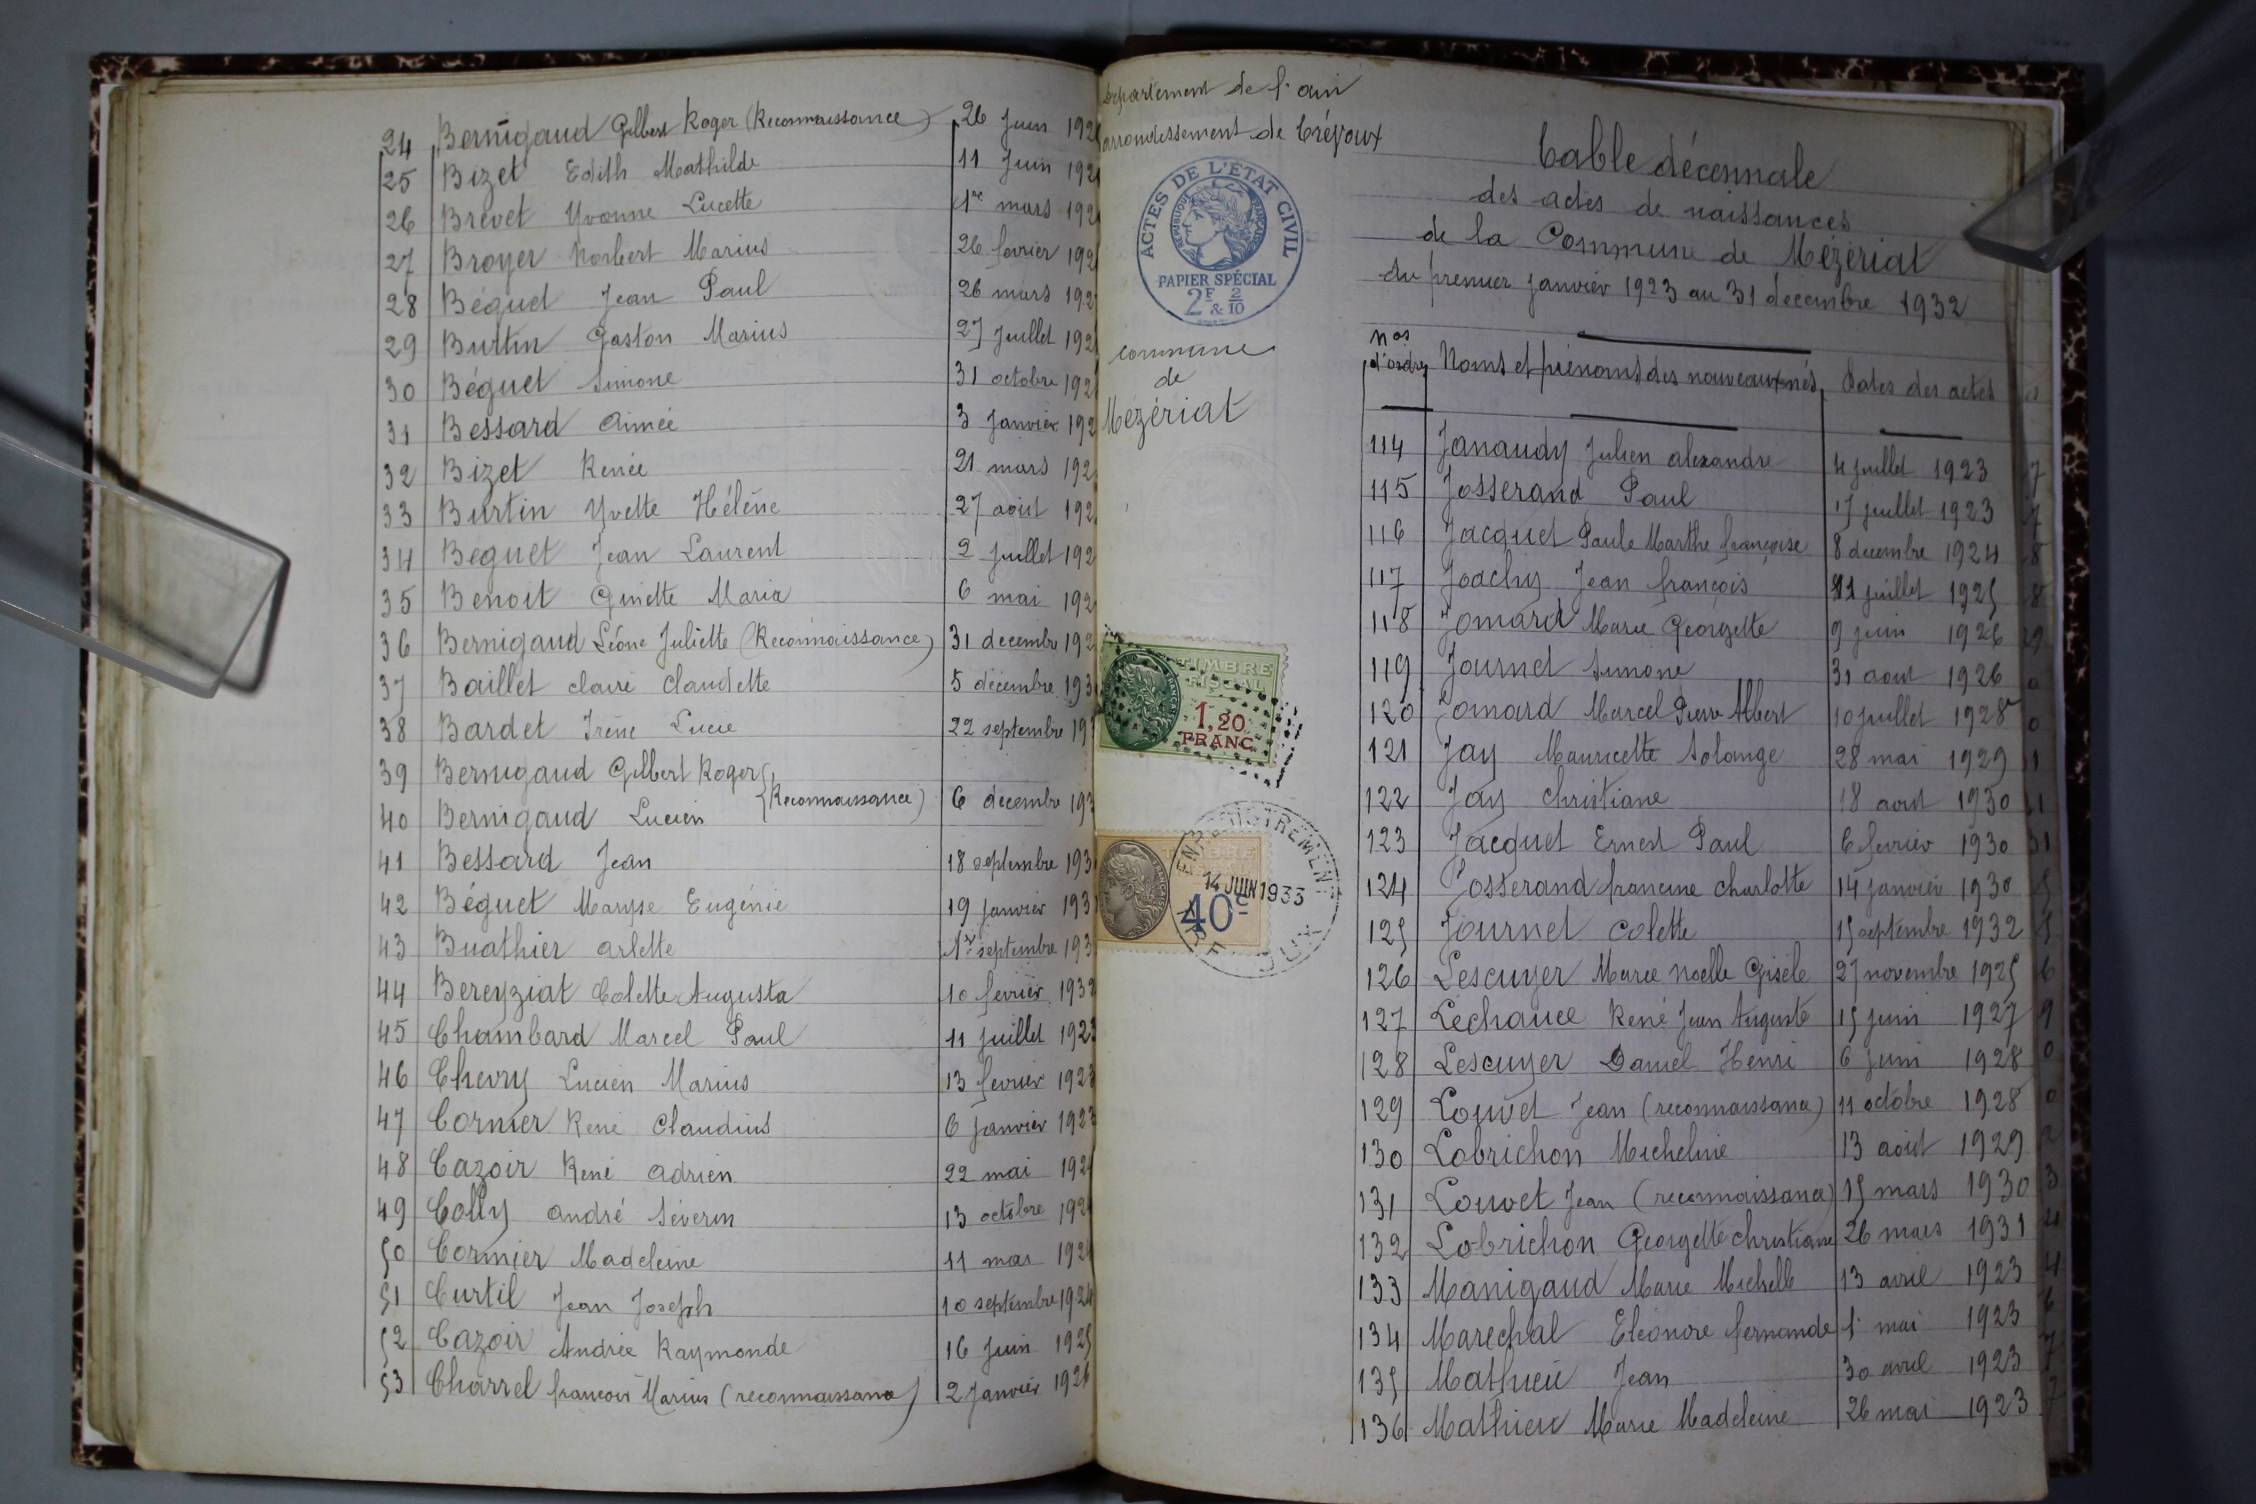 24 Bernigaud Gilbert Roger (Reconnaissance) 26 juin 192
25 Bizet Edith Mathilde 11 juin 192
26 Brevet Yvonne Lucette 1er mars 192
27 Broyer Norbert Marius 26 fevrier 192
28 Béguet Jean Paul 26 mars 192
29 Burtin Gaston Marius 27 juillet 192
30 Béguet Simone 31 octobre 192
31 Bessard Aimée 3 janvier 192
32 Bizet Renée 21 mars 192
33 Burtin Yvette Hélène 27 août 192
34 Beguet Jean Laurent 2 juillet 192
35 Benoit Ginette Maria 6 mai 192
36 Bernigaud Léone Juliette (Reconnaissance) 31 decembre 192
37 Baillet claire claudette 5 décembre 193
38 Bardet Irène Lucie 22 septembre 19
39 Bernigaud Gilbert Roger
40 Bernigaud Lucien (Reconnaissance) 6 decembre 193
41 Bessard Jean 18 septembre 193
42 Béguet Maryse Eugénie 19 janvier 193
43 Buathier arlette 1er septembre 193
44 Bereyziat Colette Augusta 10 fevrier 1932
45 Chambard Marcel Paul 11 juillet 1923
46 Chevry Lucien Marius 13 fevrier 1923
47 Cormier René Claudius 6 janvier 1923
48 Cazoir René adrien 22 mai 192
49 Colly andré Séverin 13 octobre 192
50 Cormier Madeleine 11 mai 192
51 Curtil Jean Joseph 10 septembre 1924
52 Cazoir Andrée Raymonde 16 juin 1925
53 Charrel françois Marius (reconnaissance) 2 janvier 1926
Departement de l'ain
arrondissement de Trévoux
ACTES DE L'ÉTAT CIVIL
RÉPUBLIQUE FRANÇAISE
PAPIER SPÉCIAL
2F & 2/10
commune
de
Mézériat
TIMBRE
FISCAL
1,20
FRANC
ENREGISTREMENT
14 JUIN 1933
40c
Table décennale
des actes de naissances
de la Commune de Mézériat
du premier janvier 1923 au 31 décembre 1932
nos d'ordre Noms et prénoms des nouveaux-nés Dates des actes
114 Janaudy Julien alexandre 4 juillet 1923
115 Josserand Paul 17 juillet 1923
116 Jacquet Paule Marthe françoise 8 decembre 1924
117 Joachy Jean françois 11 juillet 1925
118 Jomard Marie Georgette 9 juin 1926
119 Journet Simone 31 aout 1926
120 Jomard Marcel Pierre Albert 10 juillet 1928
121 Jay Mauricette Solange 28 mai 1929
122 Jay christiane 18 aout 1930
123 Jacquet Ernest Paul 6 fevrier 1930
124 Josserand francine charlotte 14 janvier 1930
125 Journet Colette 15 septembre 1932
126 Lescuyer Marie noëlle Gisèle 27 novembre 1925
127 Lechauce René Jean Auguste 15 juin 1927
128 Lescuyer Daniel Henri 6 juin 1928
129 Louvet Jean (reconnaissance) 11 octobre 1928
130 Lobrichon Micheline 13 août 1929
131 Louvet Jean (reconnaissance) 15 mars 1930
132 Lobrichon Georgette christiane 26 mars 1931
133 Manigaud Marie Michelle 13 avril 1923
134 Marechal Eléonore fernande 1er mai 1923
135 Mathieu Jean 30 avril 1923
136 Mathieu Marie Madeleine 26 mai 1923